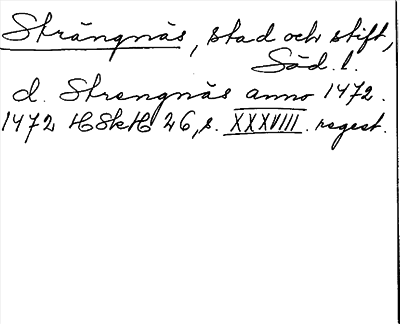 Strängnäs, stad och stift,
Söd. l.
d. Strengnäs anno 1472.
1472 HSkH 26, s. XXXVIII. regest.